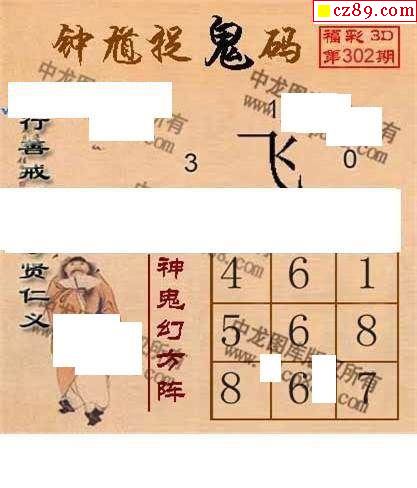 cz89.com
钟馗捉鬼码
福彩 3D
第302期
行善戒
1
飞
3
0
贤仁义
神鬼幻方阵
4 6 1
5 6 8
8 6 7
中龙图库版权所有